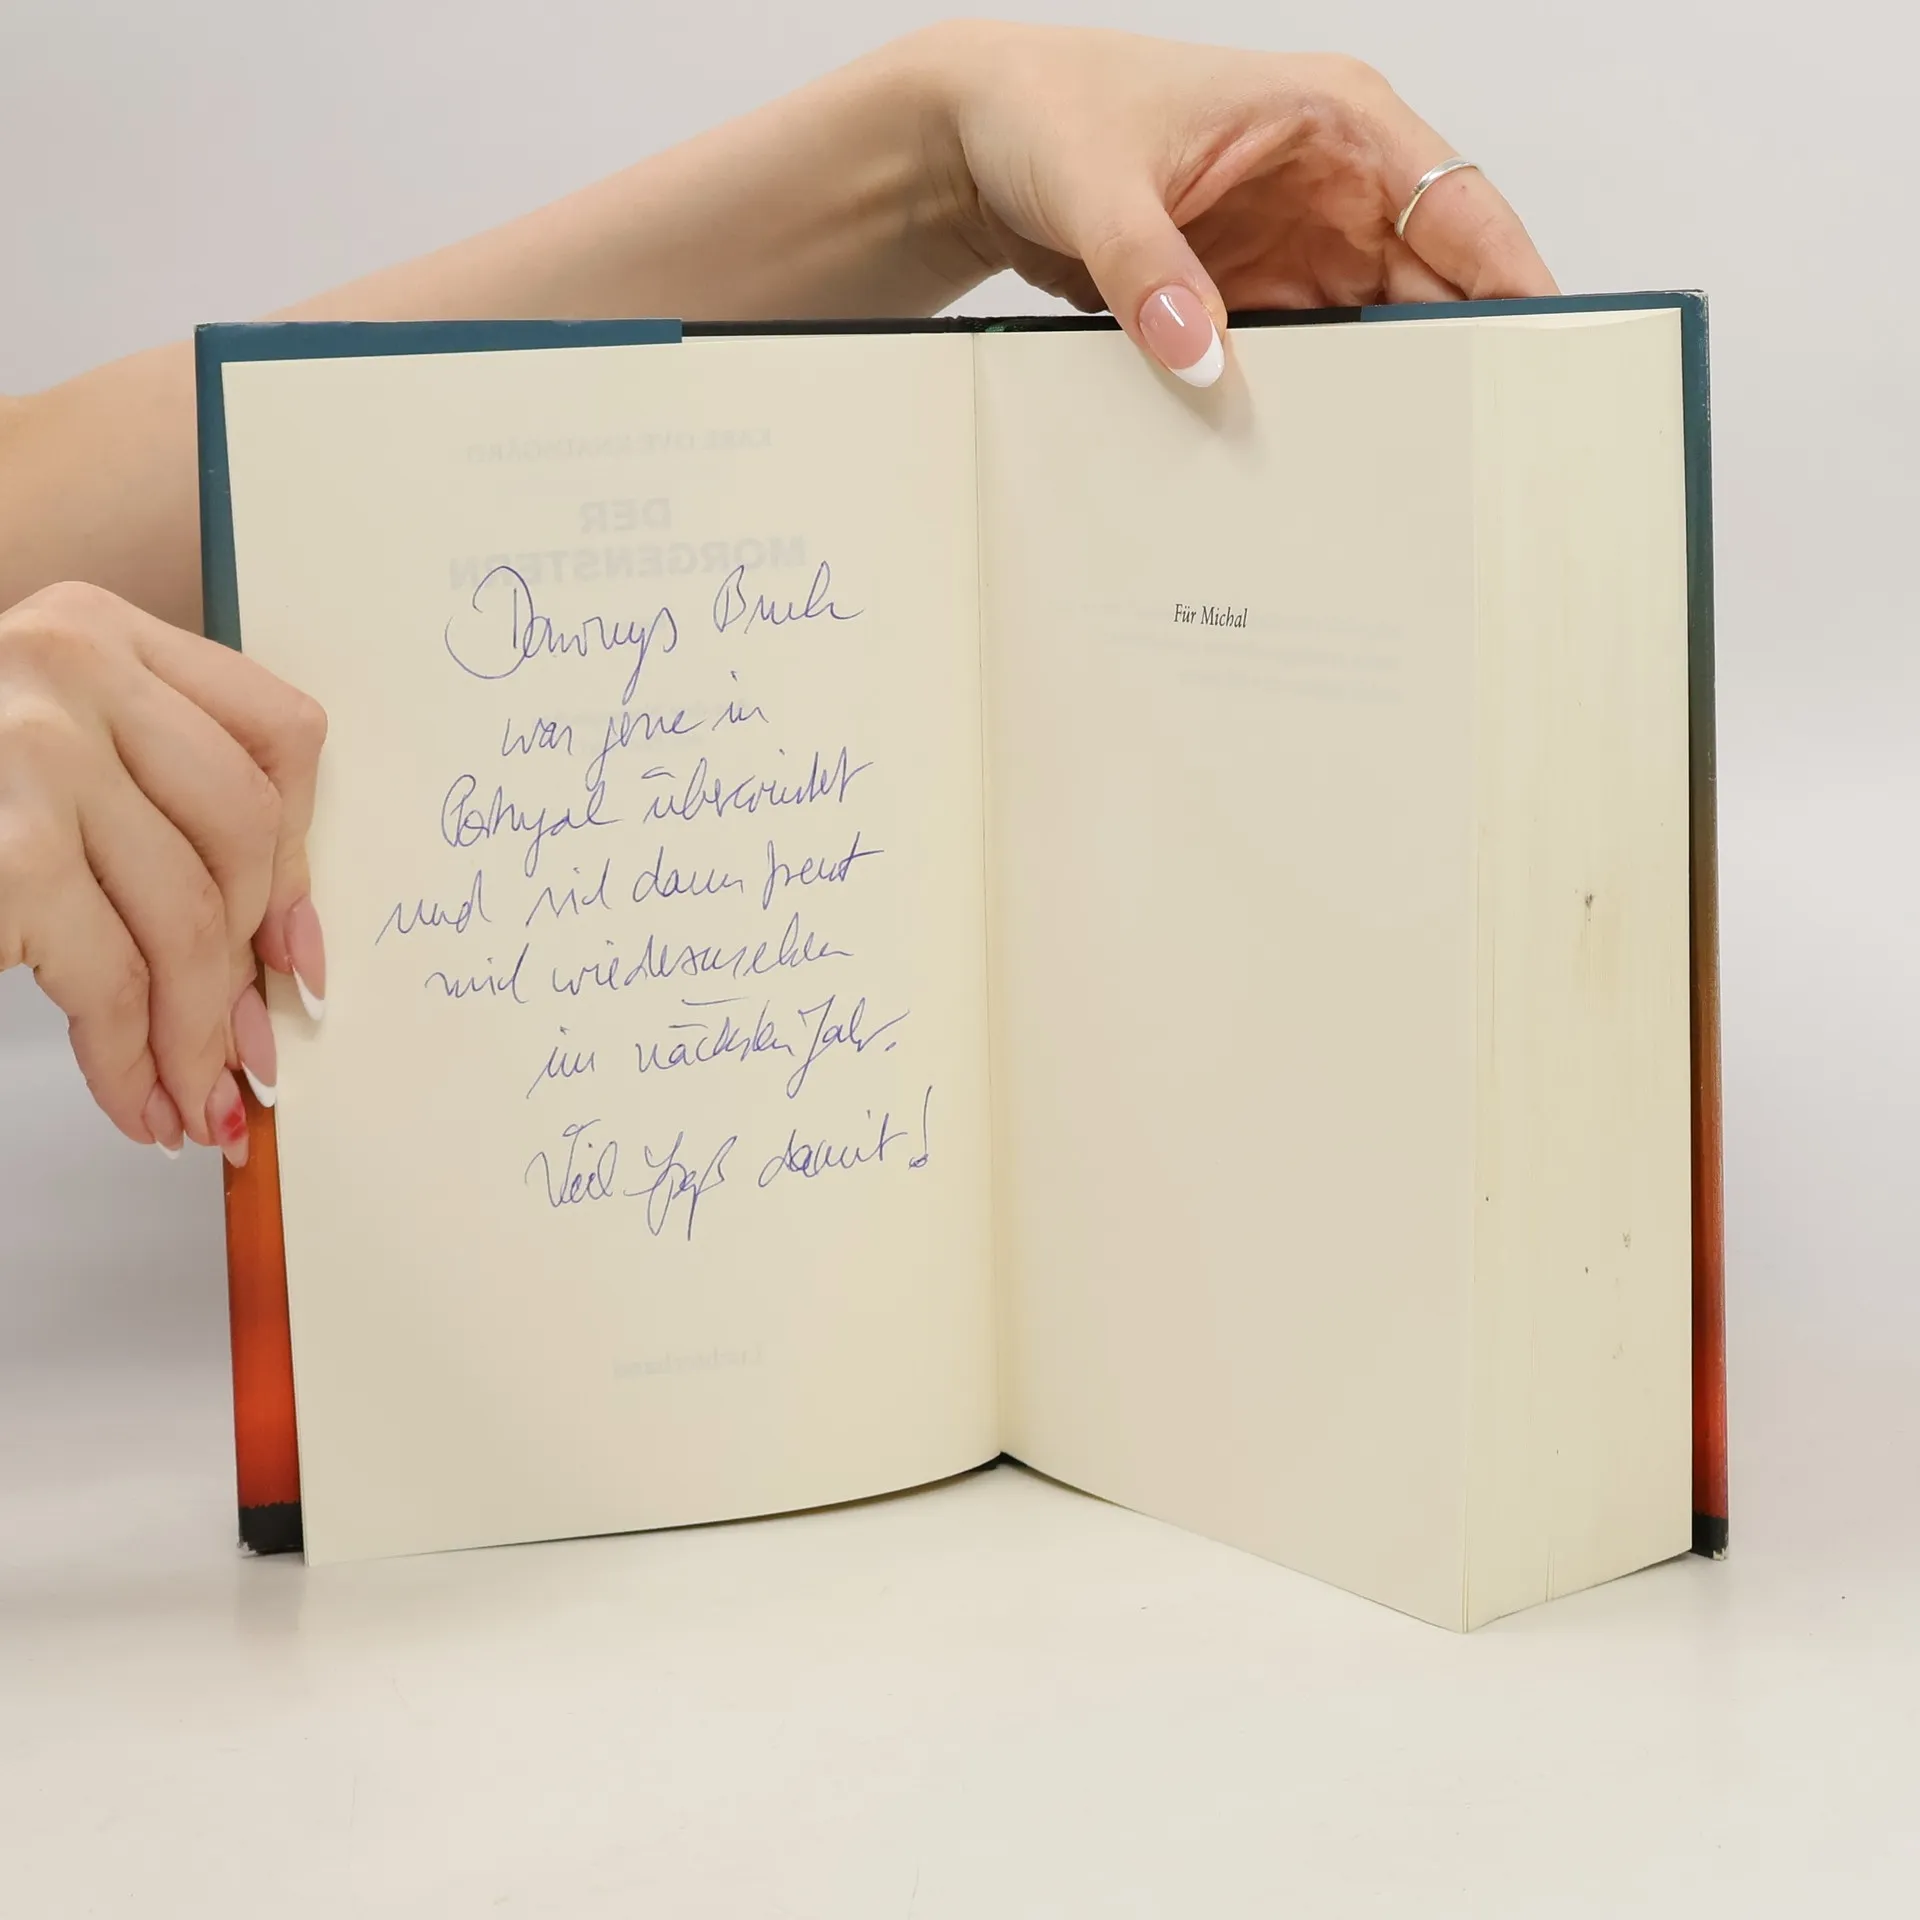 KARL OVE KNAUSGÅRD
DER
MORGENSTERN
Buch
war in
Portugal überwintet
und sich dann freut
mich wiederzusehen
im nächsten Jahr.
Viel Spaß damit!
Luchterhand
Für Michal